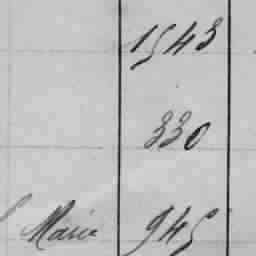 1543
330
Marie 945